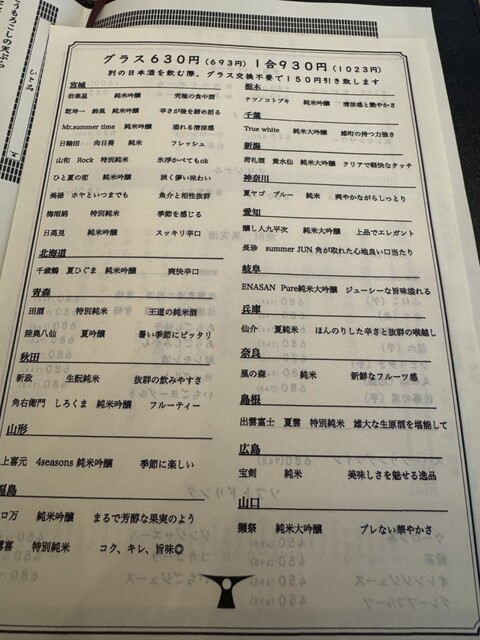 グラス630円(693円) 1合930円(1023円)
別の日本酒を飲む際、グラス交換不要で150円引き致します
宮城
伯楽星 純米吟醸 究極の食中酒
乾坤一 鈴風 純米吟醸 辛さが後を締め括る
Mr.summer time 純米吟醸 溢れる清涼感
日輪田 向日葵 純米 フレッシュ
山和 Rock 特別純米 氷浮かべてもok
ひと夏の恋 純米吟醸 淡く儚い味わい
美禄 ホヤといつまでも 魚介と相性抜群
梅雨錦 特別純米 季節を感じる
日高見 純米吟醸 スッキリ辛口
北海道
千歳鶴 夏ひぐま 純米吟醸 爽快辛口
青森
田酒 特別純米 王道の純米酒
陸奥八仙 夏吟醸 暑い季節にピッタリ
秋田
新政 生酛純米 抜群の飲みやすさ
角右衛門 しろくま 純米吟醸 フルーティー
山形
上喜元 4seasons 純米吟醸 季節に楽しい
福島
ロ万 純米吟醸 まるで芳醇な果実のよう
特別純米 コク、キレ、旨味◎
栃木
ナツノコトブキ 純米吟醸 清涼感と艶やかさ
千葉
True white 純米大吟醸 雄町の持つ力強さ
新潟
荷札酒 黄水仙 純米大吟醸 クリアで軽快なタッチ
神奈川
夏ヤゴ ブルー 純米 爽やかながらしっとり
愛知
醸し人九平次 純米大吟醸 上品でエレガント
長珍 summer JUN 角が取れた心地良い口当たり
岐阜
ENASAN Pure純米大吟醸 ジューシーな旨味溢れる
兵庫
仙介 夏純米 ほんのりした辛さと抜群の喉越し
奈良
風の森 純米 新鮮なフルーツ感
島根
出雲富士 夏雲 特別純米 雄大な生原酒を堪能して
広島
宝剣 純米 美味しさを魅せる逸品
山口
獺祭 純米大吟醸 ブレない華やかさ
うもろこしの天ぷら